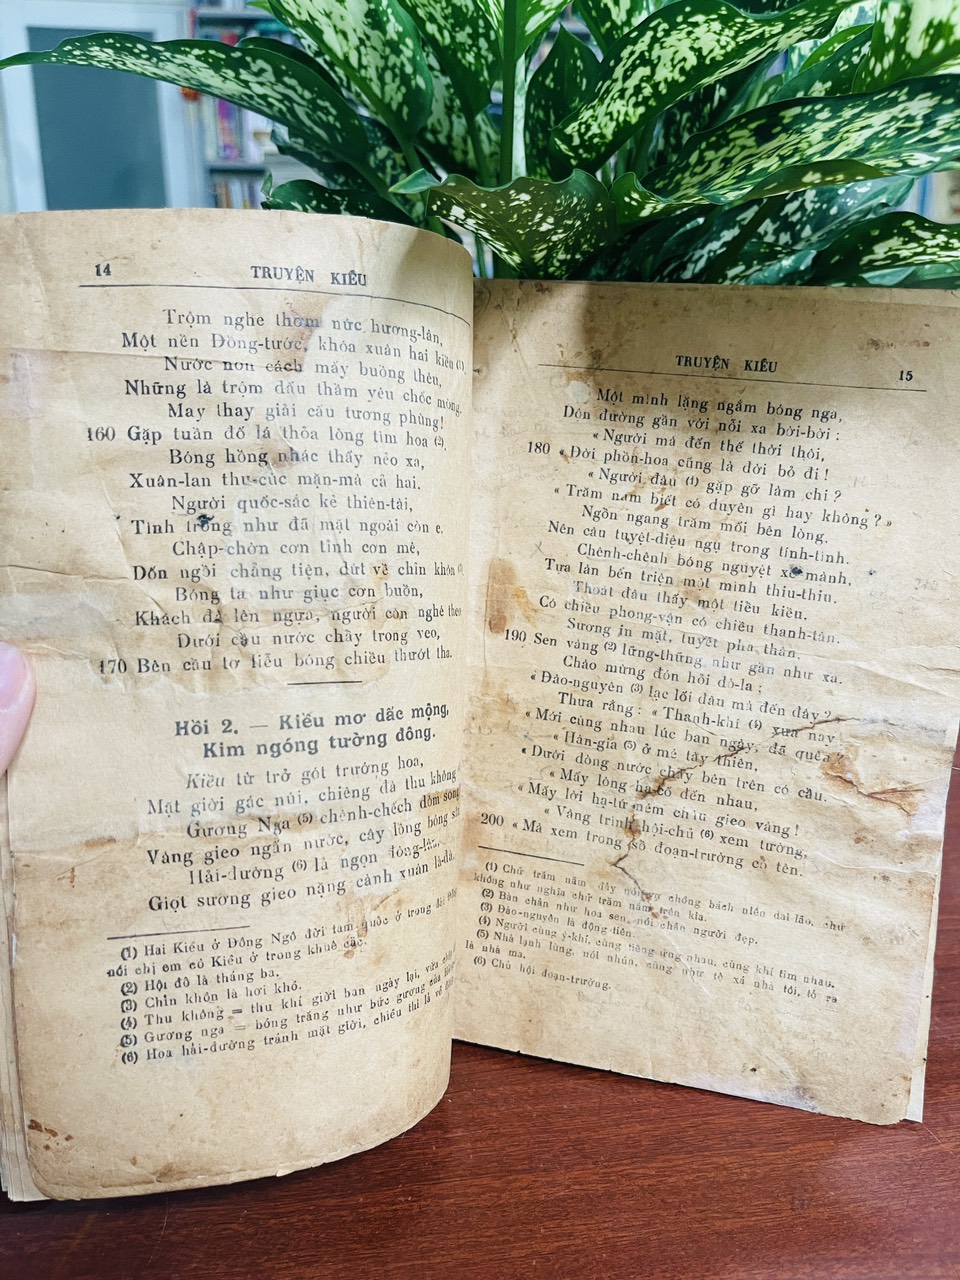 14 TRUYỆN KIỀU
Trộm nghe thơm nức hương-lân,
Một nền Đồng-tước, khóa xuân hai kiều (1),
Nước non cách mấy buồng thêu,
Những là trộm dấu thầm yêu chốc mòng.
May thay giải cấu tương phùng!
160 Gặp tuần đố lá thỏa lòng tìm hoa (2),
Bóng hồng nhác thấy nẻo xa,
Xuân-lan thu-cúc mặn-mà cả hai.
Người quốc-sắc kẻ thiên-tài,
Tình trong như đã mặt ngoài còn e.
Chập-chờn cơn tỉnh cơn mê,
Dốn ngồi chẳng tiện, dứt về chỉn khôn (3)
Bóng tà như giục cơn buồn,
Khách đà lên ngựa, người còn nghé theo
Dưới cầu nước chảy trong veo,
170 Bên cầu tơ liễu bóng chiều thướt tha.
Hồi 2. — Kiều mơ dấc mộng,
Kim ngóng tường đông.
Kiều từ trở gót trướng hoa,
Mặt giời gác núi, chiêng đà thu không
Gương Nga (5) chênh-chếch dòm song
Vàng gieo ngấn nước, cây lồng bóng sân
Hải-đường (6) lả ngọn đông-lân,
Giọt sương gieo nặng cành xuân la-đà.
(1) Hai Kiều ở Đông Ngô đời tam-quốc ở trong đài
nói chị em cô Kiều ở trong khuê các.
(2) Hội đố là tháng ba.
(3) Chỉn khôn là hơi khó.
(4) Thu không = thu khí giời ban ngày lại, vừa
(5) Gương nga = bóng trăng như bức gương của
(6) Hoa hải-đường tránh mặt giời, chiều thì lả về
TRUYỆN KIỀU 15
Một mình lặng ngắm bóng nga,
Dộn đường gần với nỗi xa bời-bời :
« Người mà đến thế thời thôi,
180 « Đời phồn-hoa cũng là đời bỏ đi !
« Người đâu (1) gặp gỡ làm chi ?
« Trăm năm biết có duyên gì hay không ? »
Ngổn ngang trăm mối bên lòng,
Nên câu tuyệt-diệu ngụ trong tính-tình.
Chênh-chênh bóng nguyệt xế mành,
Tựa lân bên triện một mình thiu-thiu.
Thoắt đâu thấy một tiểu kiều,
Có chiều phong-vận có chiều thanh-tân.
Sương in mặt, tuyết pha thân,
190 Sen vàng (2) lững-thững như gần như xa.
Chào mừng đón hỏi dò-la ;
« Đào-nguyên (3) lạc lối đâu mà đến đây ?
Thưa rằng : « Thanh-khí (4) xưa nay
« Mới cùng nhau lúc ban ngày, đã quên ?
« Hàn-gia (5) ở mé tây thiên,
« Dưới dòng nước chảy bên trên có cầu.
« Mấy lòng hạ-cố đến nhau,
« Mấy lời hạ-tứ ném châu gieo vàng !
« Vâng trình hội-chủ (6) xem tường,
200 « Mà xem trong sổ đoạn-trường có tên.
(1) Chữ trăm năm đây nói vợ chồng bách niên dai lão, chứ
không như nghĩa chữ trăm năm trên kia.
(2) Bàn chân như hoa sen, nói chân người đẹp.
(3) Đào-nguyên là động-tiên.
(4) Người cùng ý-khí, cùng tiếng ứng nhau, cùng khí tìm nhau.
(5) Nhà lạnh lùng, nói nhún, cũng như tệ xá nhà tôi, tỏ ra
là nhà ma.
(6) Chủ hội đoạn-trường.